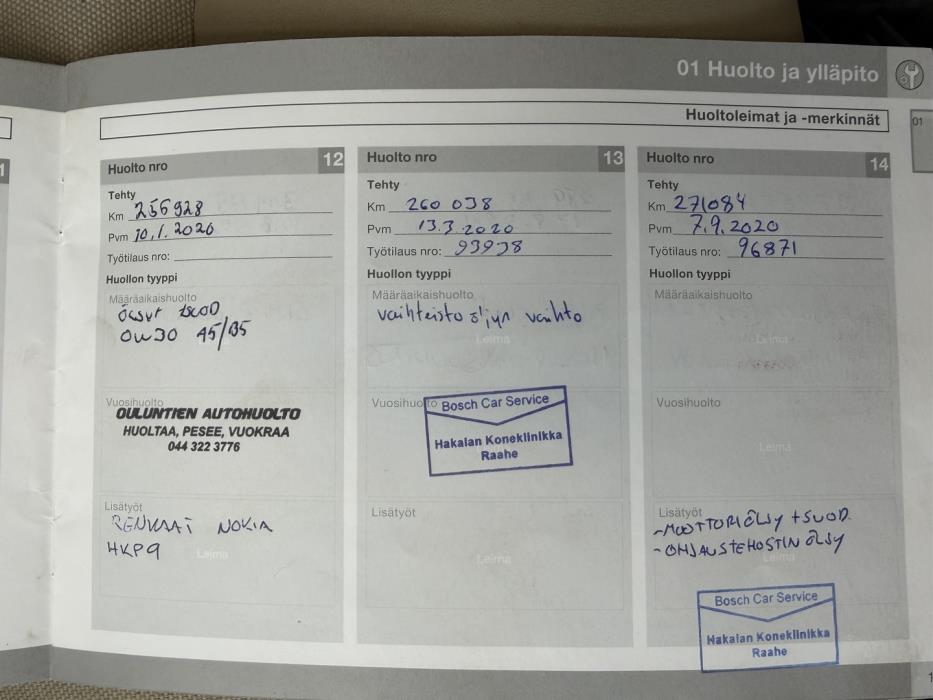 01 Huolto ja ylläpito
Huoltoleimat ja -merkinnät
01
1
Huolto nro 12
Tehty
Km 256928
Pvm 10.1.2020
Työtilaus nro:
Huollon tyyppi
Määräaikaishuolto
öljyt
0W30 A5/B5
Leima
Vuosihuolto
OULUNTIEN AUTOHUOLTO
HUOLTAA, PESEE, VUOKRAA
044 322 3776
Lisätyöt
RENKAAT NOKIA
HKP9
Leima
Huolto nro 13
Tehty
Km 260 038
Pvm 13.3.2020
Työtilaus nro: 93938
Huollon tyyppi
Määräaikaishuolto
vaihteisto öljyn vaihto
Leima
Vuosihuolto
Bosch Car Service
Hakalan Koneklinikka
Raahe
Lisätyöt
Leima
Huolto nro 14
Tehty
Km 271084
Pvm 7.9.2020
Työtilaus nro: 96871
Huollon tyyppi
Määräaikaishuolto
Leima
Vuosihuolto
Leima
Lisätyöt
-MOOTTORIÖLJY + SUOD.
-OHJAUSTEHOSTIN ÖLJY
Leima
Bosch Car Service
Hakalan Koneklinikka
Raahe
1